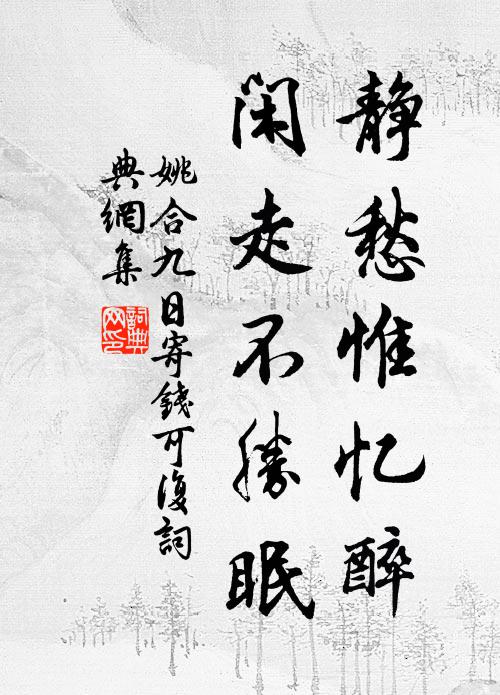 静愁惟忆醉
闲走不胜眠
姚合九日寄錢可復詞
典網集
詞典网印